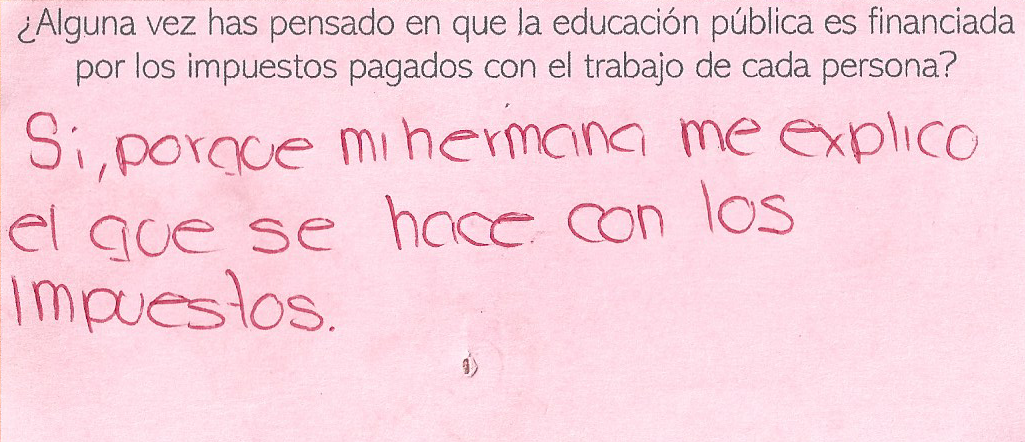 ¿Alguna vez has pensado en que la educación pública es financiada
por los impuestos pagados con el trabajo de cada persona?
Si, porque mi hermana me explico
el que se hace con los
impuestos.